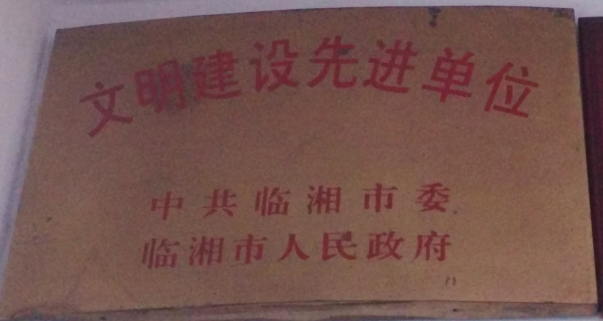 文明建设先进单位
中共临湘市委
临湘市人民政府